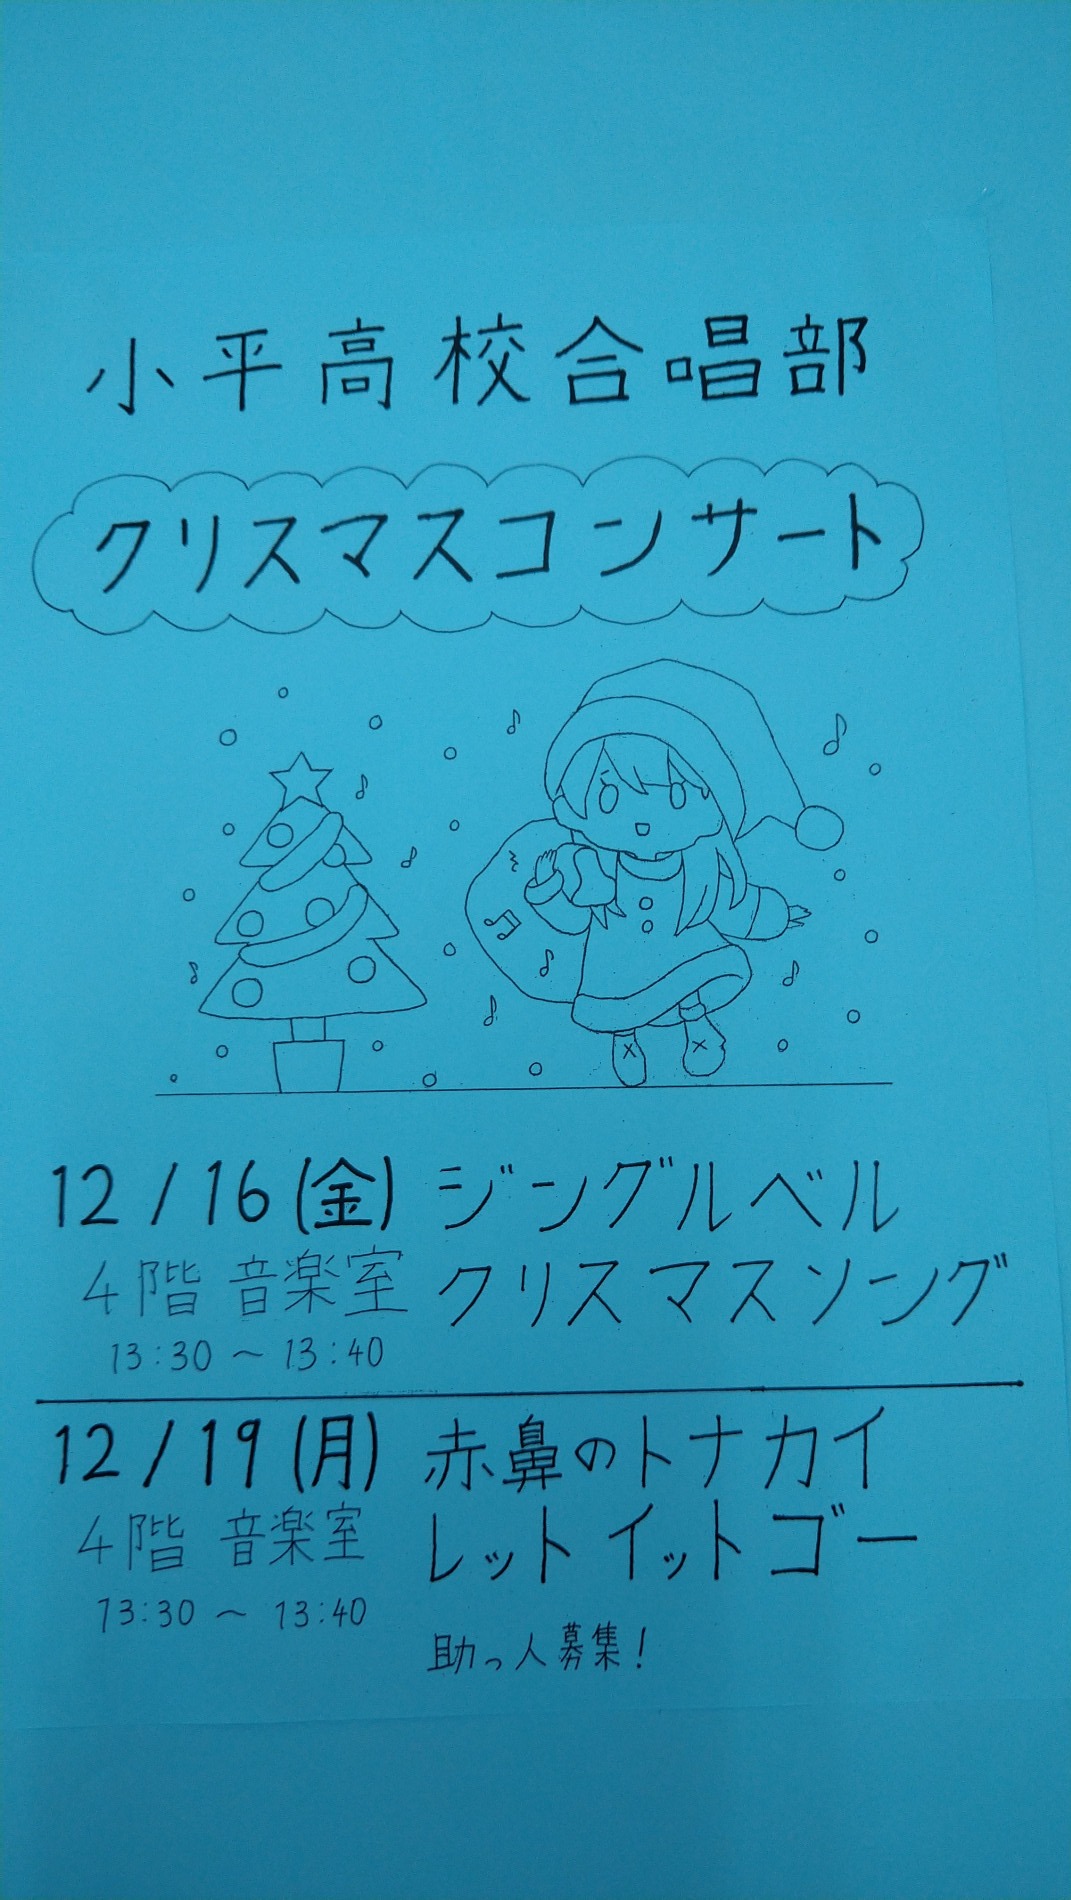 小平高校合唱部
クリスマスコンサート
12/16(金) ジングルベル
4階 音楽室 クリスマスソング
13:30 ～ 13:40
12/19(月) 赤鼻のトナカイ
4階 音楽室 レットイットゴー
13:30 ～ 13:40
助っ人募集!